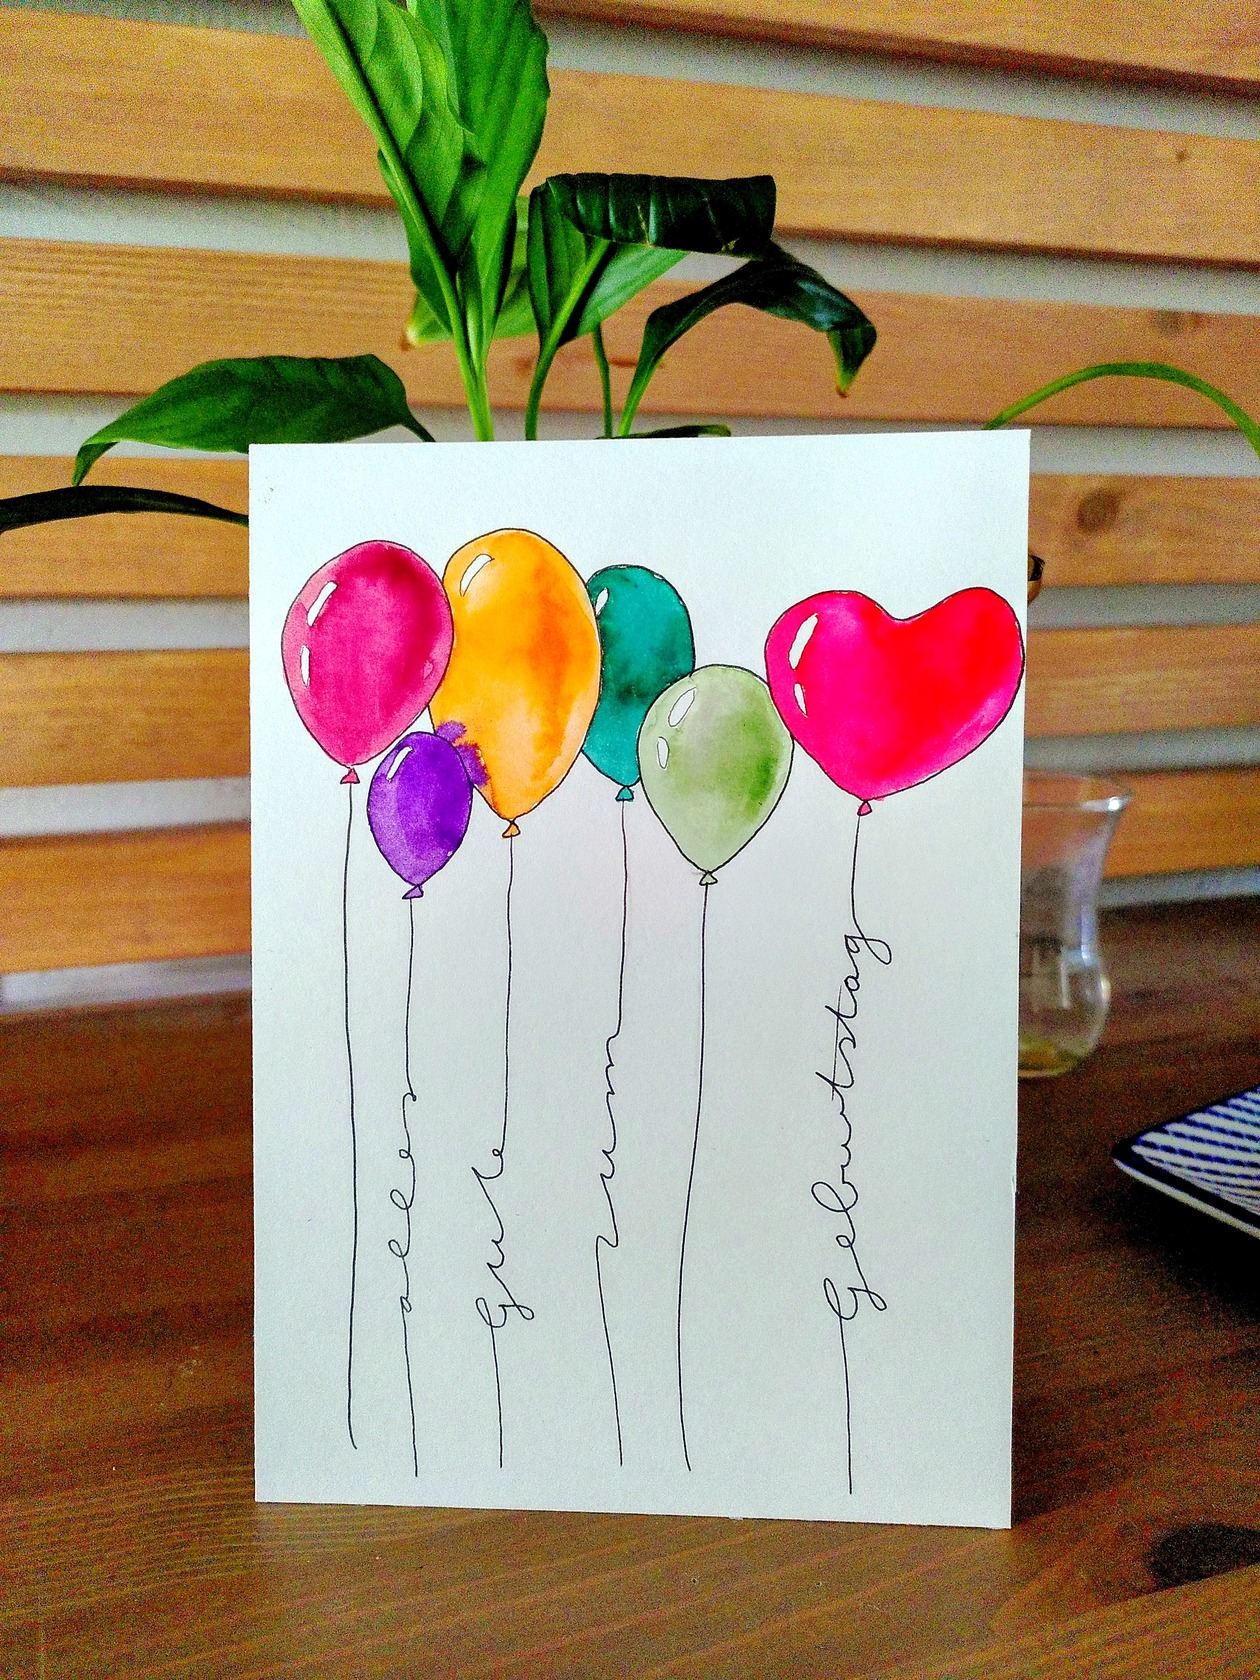 alles
Gute
zum
Geburtstag